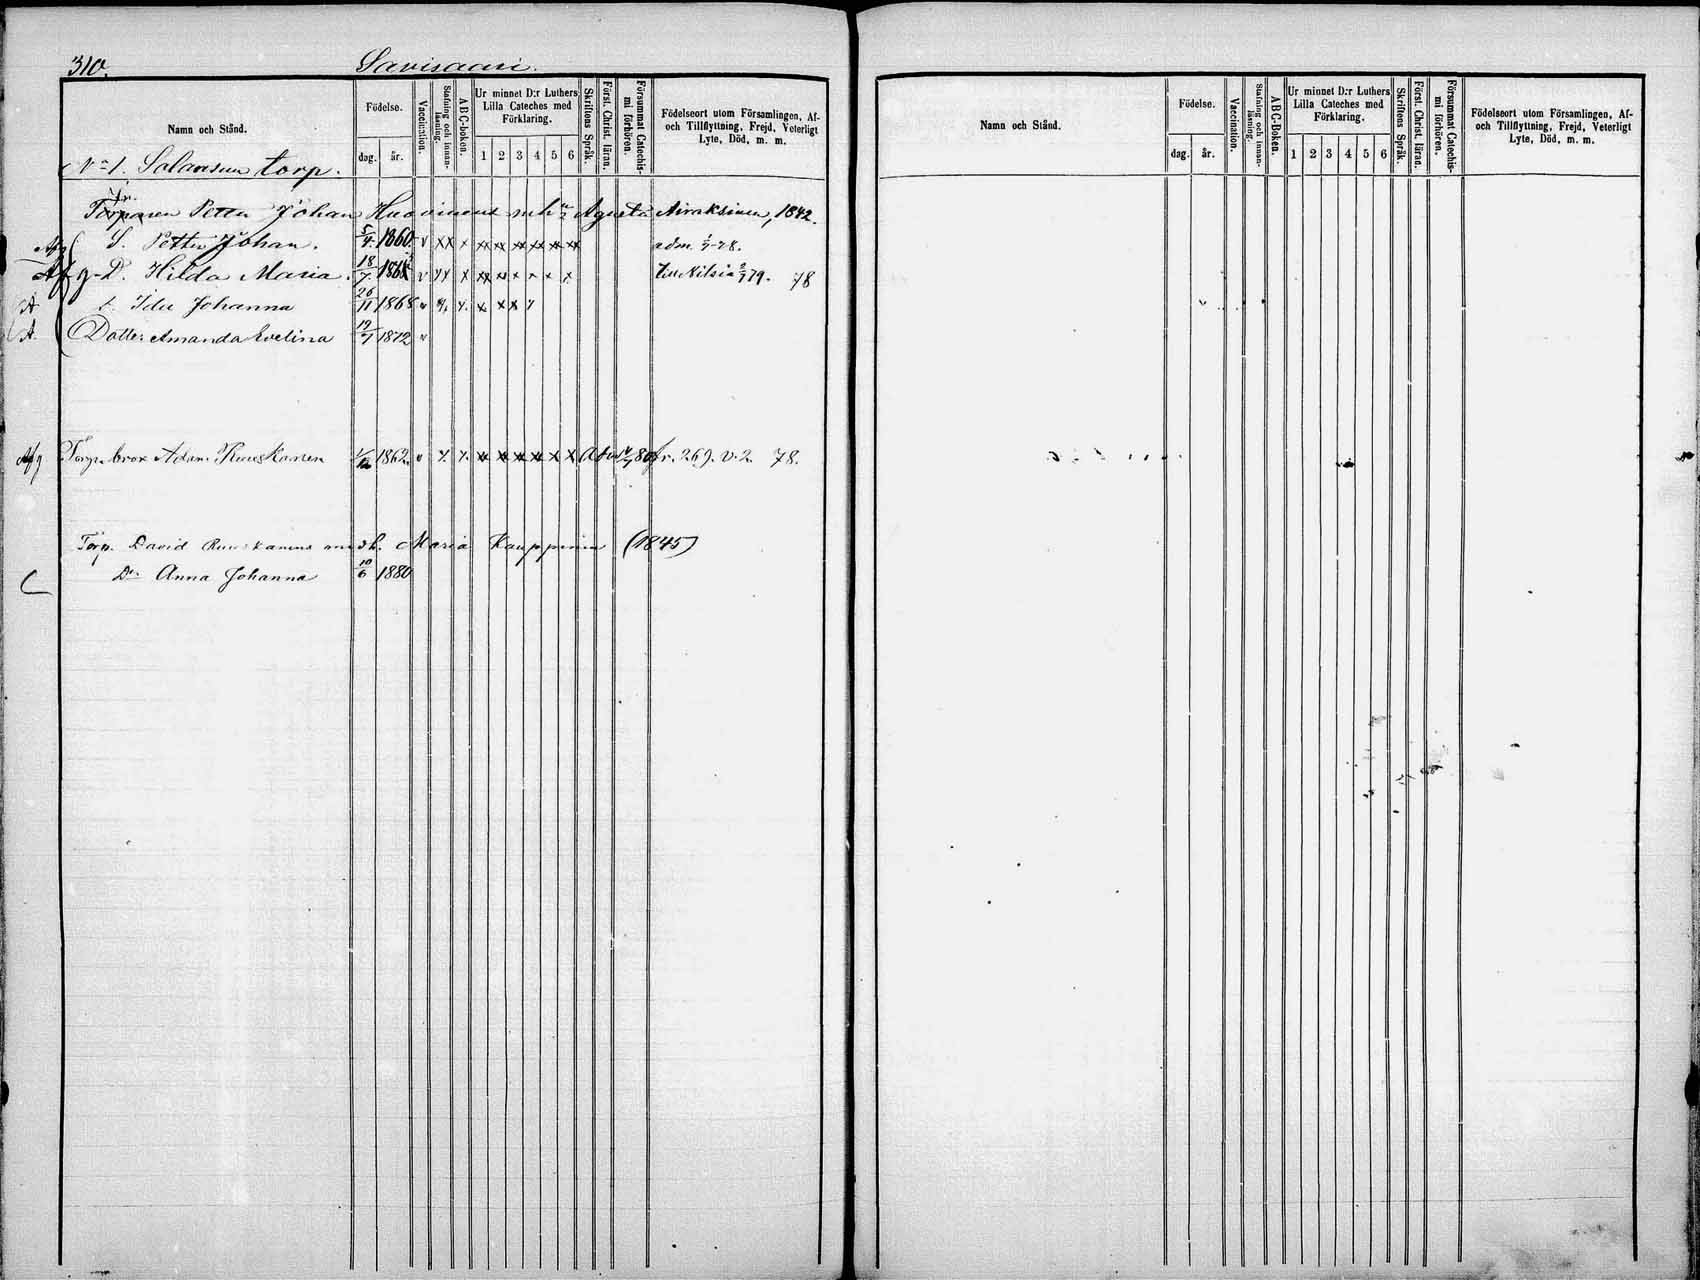 310. Savisaari.
Namn och Stånd.
Födelse.
dag. år.
Vaccination.
Stafning och innanläsning.
ABC-boken.
Ur minnet D:r Luthers Lilla Cateches med Förklaring.
1 2 3 4 5 6
Skriftens Språk.
Först. Christ. läran.
Försummat Catechismi förhören.
Födelseort utom Församlingen, Af- och Tillflyttning, Frejd, Veterligt Lyte, Död, m. m.
N:o 1. torp.
Petter Johan Huovinens m h Agusta Airaksinen, 1842.
Afg S. Petter Johan. 5/4. 1860. v xx x xx xx xx xx xx xx adm. 78.
Afg D. Hilda Maria. 18/7 v xx x till Nilsiä 79. 78
A d. Ida Johanna 26/11 1868 x x x
A. Dotter Amanda Evelina 19/7 1872 v
Afg Torp. bror Adam Ruuskanen 1862. x x 80 fr. 269. v. 2. 78.
Torp. David Ruuskanens m h. Maria Kauppinen (1845)
D:r Anna Johanna 10/6 1880
Namn och Stånd.
Födelse.
dag. år.
Vaccination.
Stafning och innanläsning.
ABC-Boken.
Ur minnet D:r Luthers Lilla Cateches med Förklaring.
1 2 3 4 5 6
Skriftens Språk.
Först. Christ. läran.
Försummat Catechismi förhören.
Födelseort utom Församlingen, Af- och Tillflyttning, Frejd, Veterligt Lyte, Död, m. m.